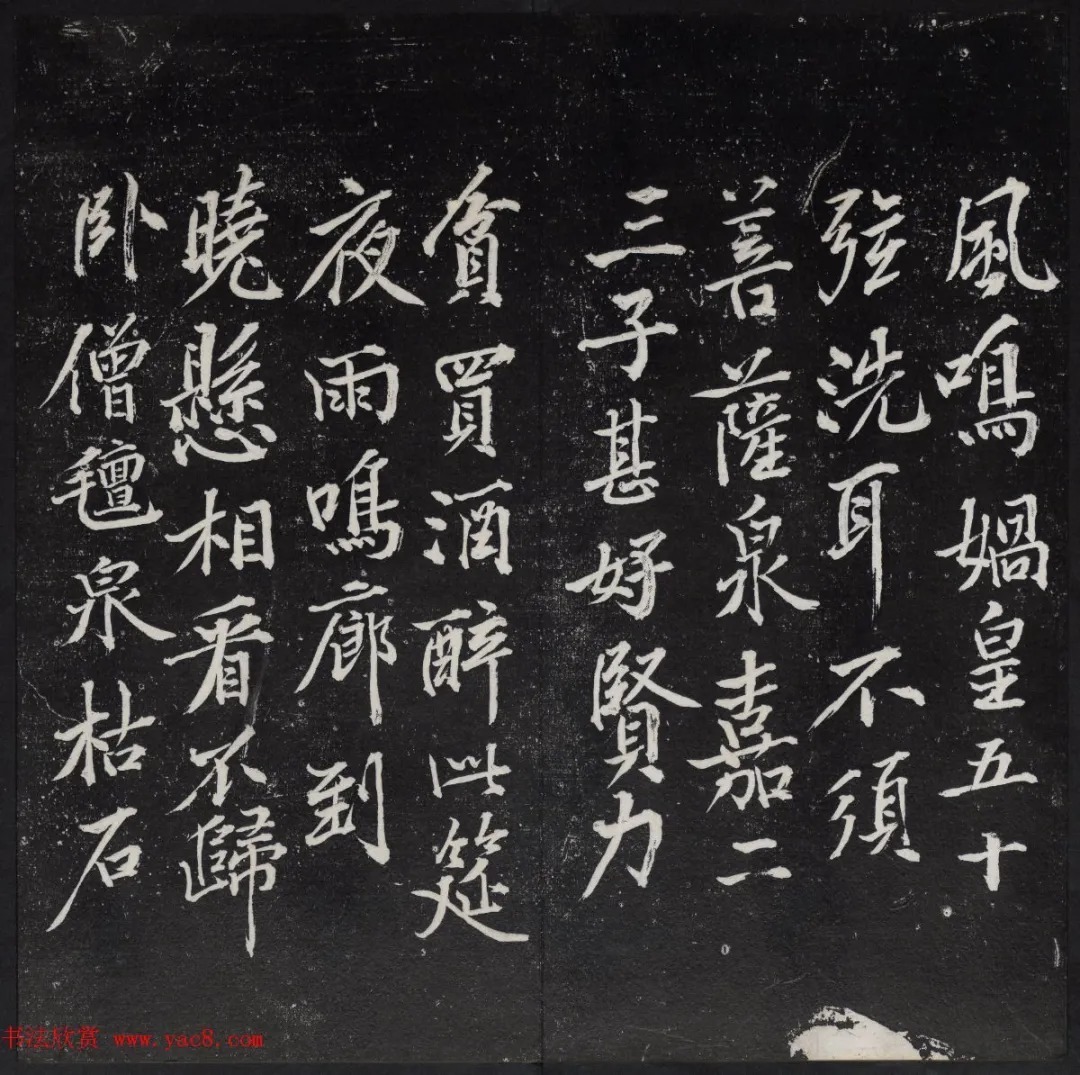 風鳴媧皇五十
弦洗耳不須
菩薩泉嘉二
三子甚好賢力
貧買酒醉此筵
夜雨鳴廊到
曉懸相看不歸
臥僧氊泉枯石
书法欣赏 www.yac8.com